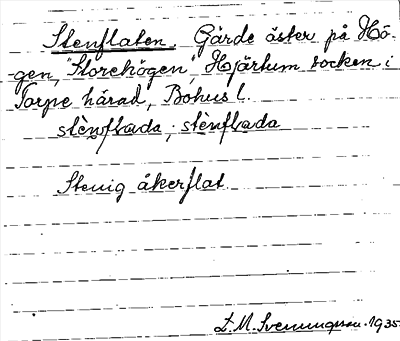 Stenflaten. Gärde öster på Hö-
gen, "Storehögen", Hjärtum socken i
Torpe härad, Bohusl.
stènflada; stènflada
Stenig åkerflat
L. M. Svenungsson. 1935